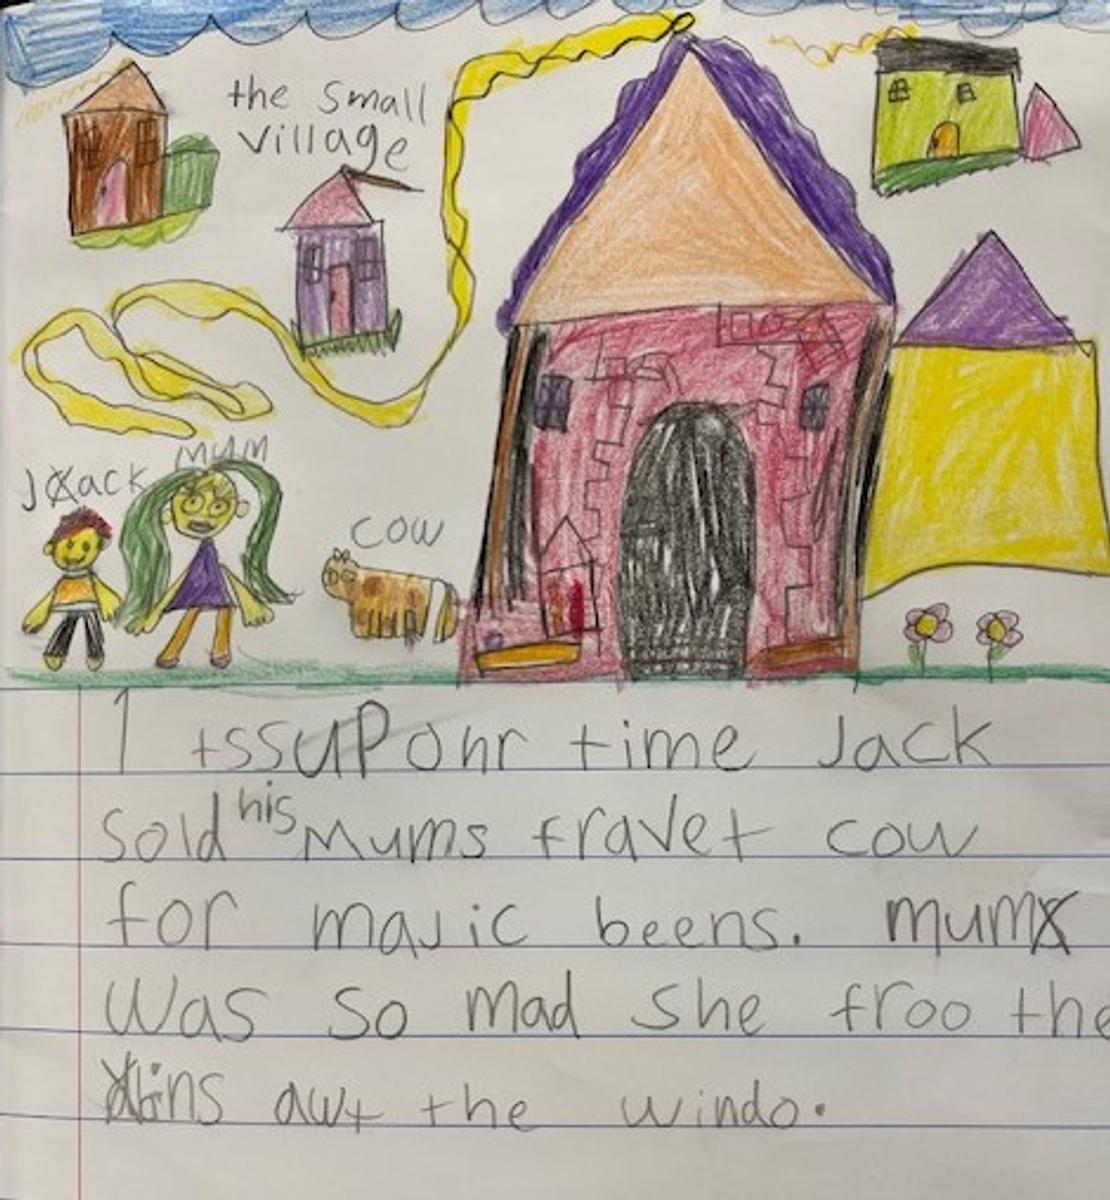 the small
village
mum
Jack
cow
1 tssupohr time Jack
Sold his Mums fravet cow
for majic beens. mum
was so mad she froo the
ins awt the windo.